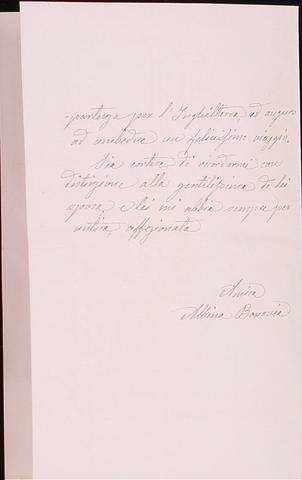 partenza per l'Inghilterra, ed auguro
ad ambedue un felicissimo viaggio.
Sia cortese di ricordarmi con
distinzione alla gentilissima di lei
sposa, e lei mi abbia sempre per
antica, affezionata
Amica
Albina